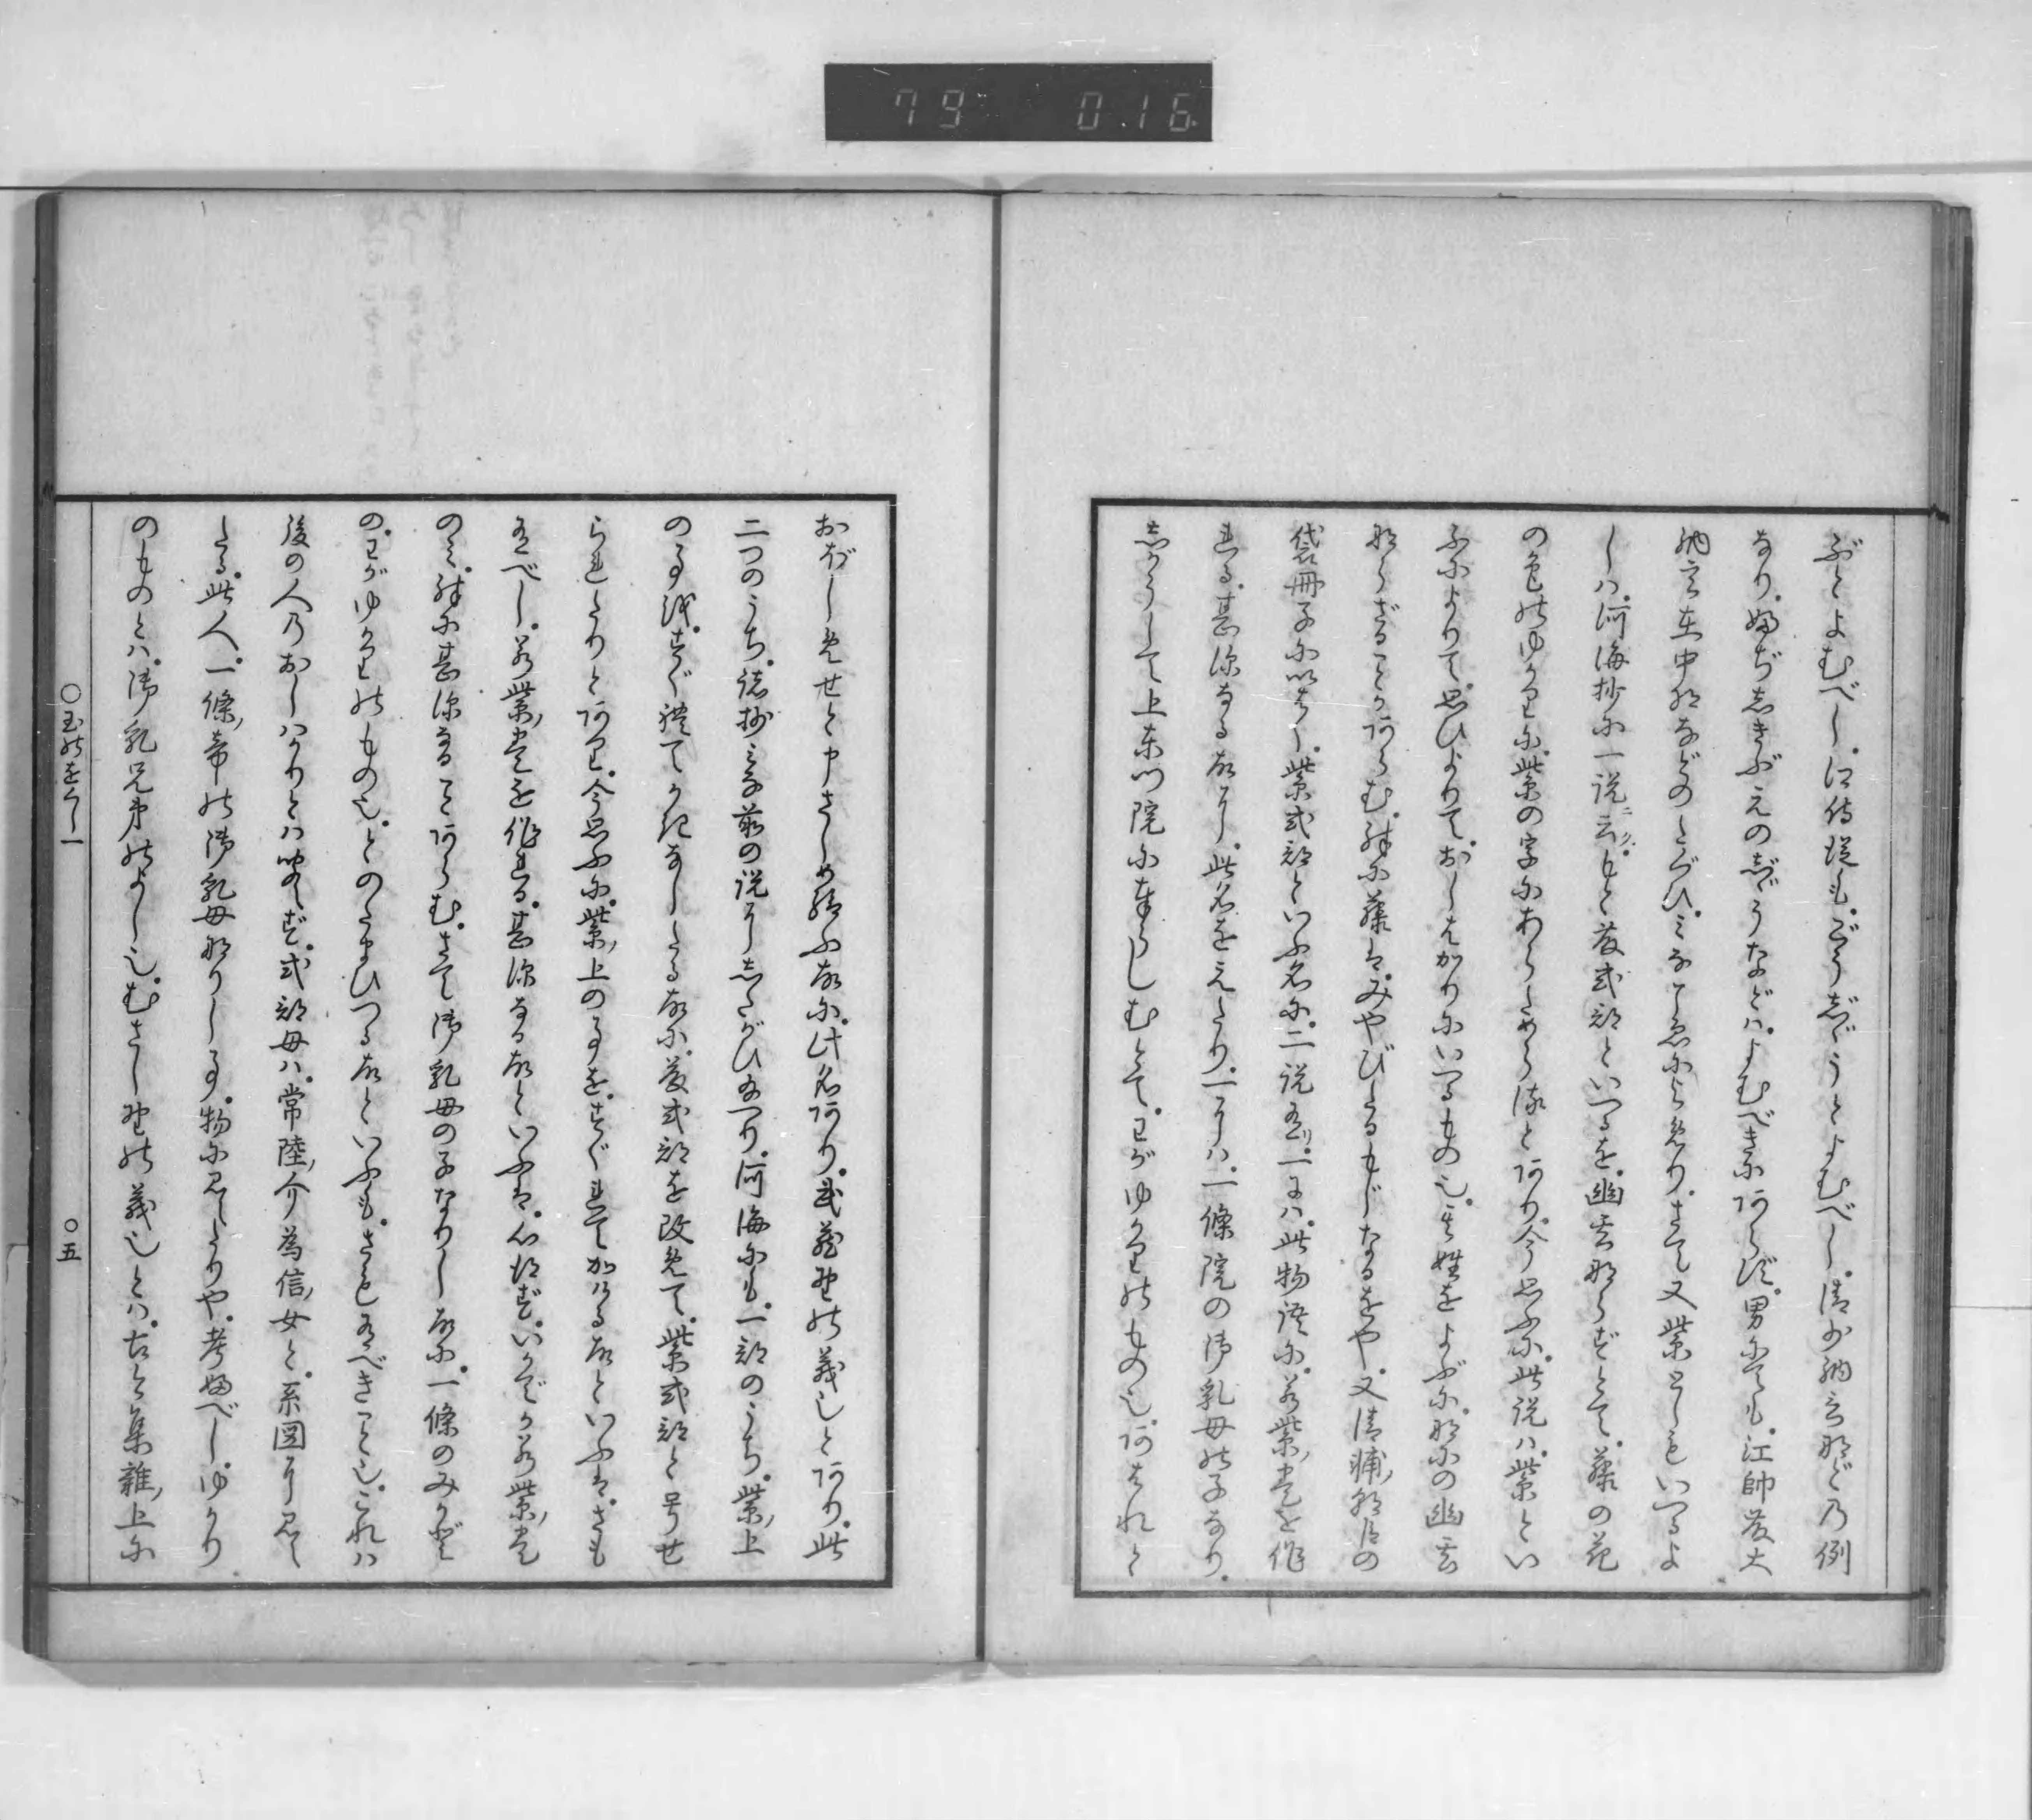 79 0.16.
ぶとよむべし。江侍従も。ごうじゞうとよむべし。清少納言などの例
なり。婦ぢしきぶえのじゞうなどは。よむべきにあらず。男にても。江帥藤大
納言在中将などのたぐひ。みなこゑによめり。さて又紫としもいへるよ
しは。河海抄に一説ニ云ク。もと藤式部といへるを。幽玄ならずとて。藤の花
の色のゆかりに。紫の字にあらためらるとあり。今思ふに。此説は。紫とい
ふによりて。思ひよりて。おしはかりにいへるもの也。其姓をよぶに。なにの幽玄
ならざることかあらむ。殊に藤は。みやびたるもじなるをや。又清輔ノ朝臣の
袋冊子にいはく。紫式部といふ名に。二説有リ。一には。此物語に。若紫ノ巻を作
れる。甚深なる故に。此名をえたり。一には。一條院の御乳母の子なり。
しかうして上東門院に奉らしむとて。わがゆかりのもの也。あはれと
おぼしめせと申さしめ給ふ故に。此名あり。武蔵野の義也とあり。此
二つのうち。諸抄みな前の説にしたがひ給へり。河海にも。一部のうち。紫ノ上
の事を。すぐれてかきなしたる故に。藤式部を改めて。紫式部と号せ
られたりとあり。今思ふに。紫ノ上の事を。すぐれてかける故といふは。さも
有べし。若紫ノ巻を作れる。甚深なる故といふは。心得ず。いかでか若紫ノ巻
のみ。殊に甚深なることあらむ。さて御乳母の子なりし故に。一條のみかど
の。わがゆかりのもの也。とのたまひつる故といふも。さも有べきこと也。これは
後の人のおしはかりとは聞えず。式部母は。常陸ノ介為信ノ女と。系図に見え
たる。此人。一條ノ帝の御乳母なりし事。物に見えたりや。考ふべし。ゆかり
のものとは。御乳兄弟のよし也。むさし野の義也とは。古今集雑ノ上に
○玉のをぐし一
○五